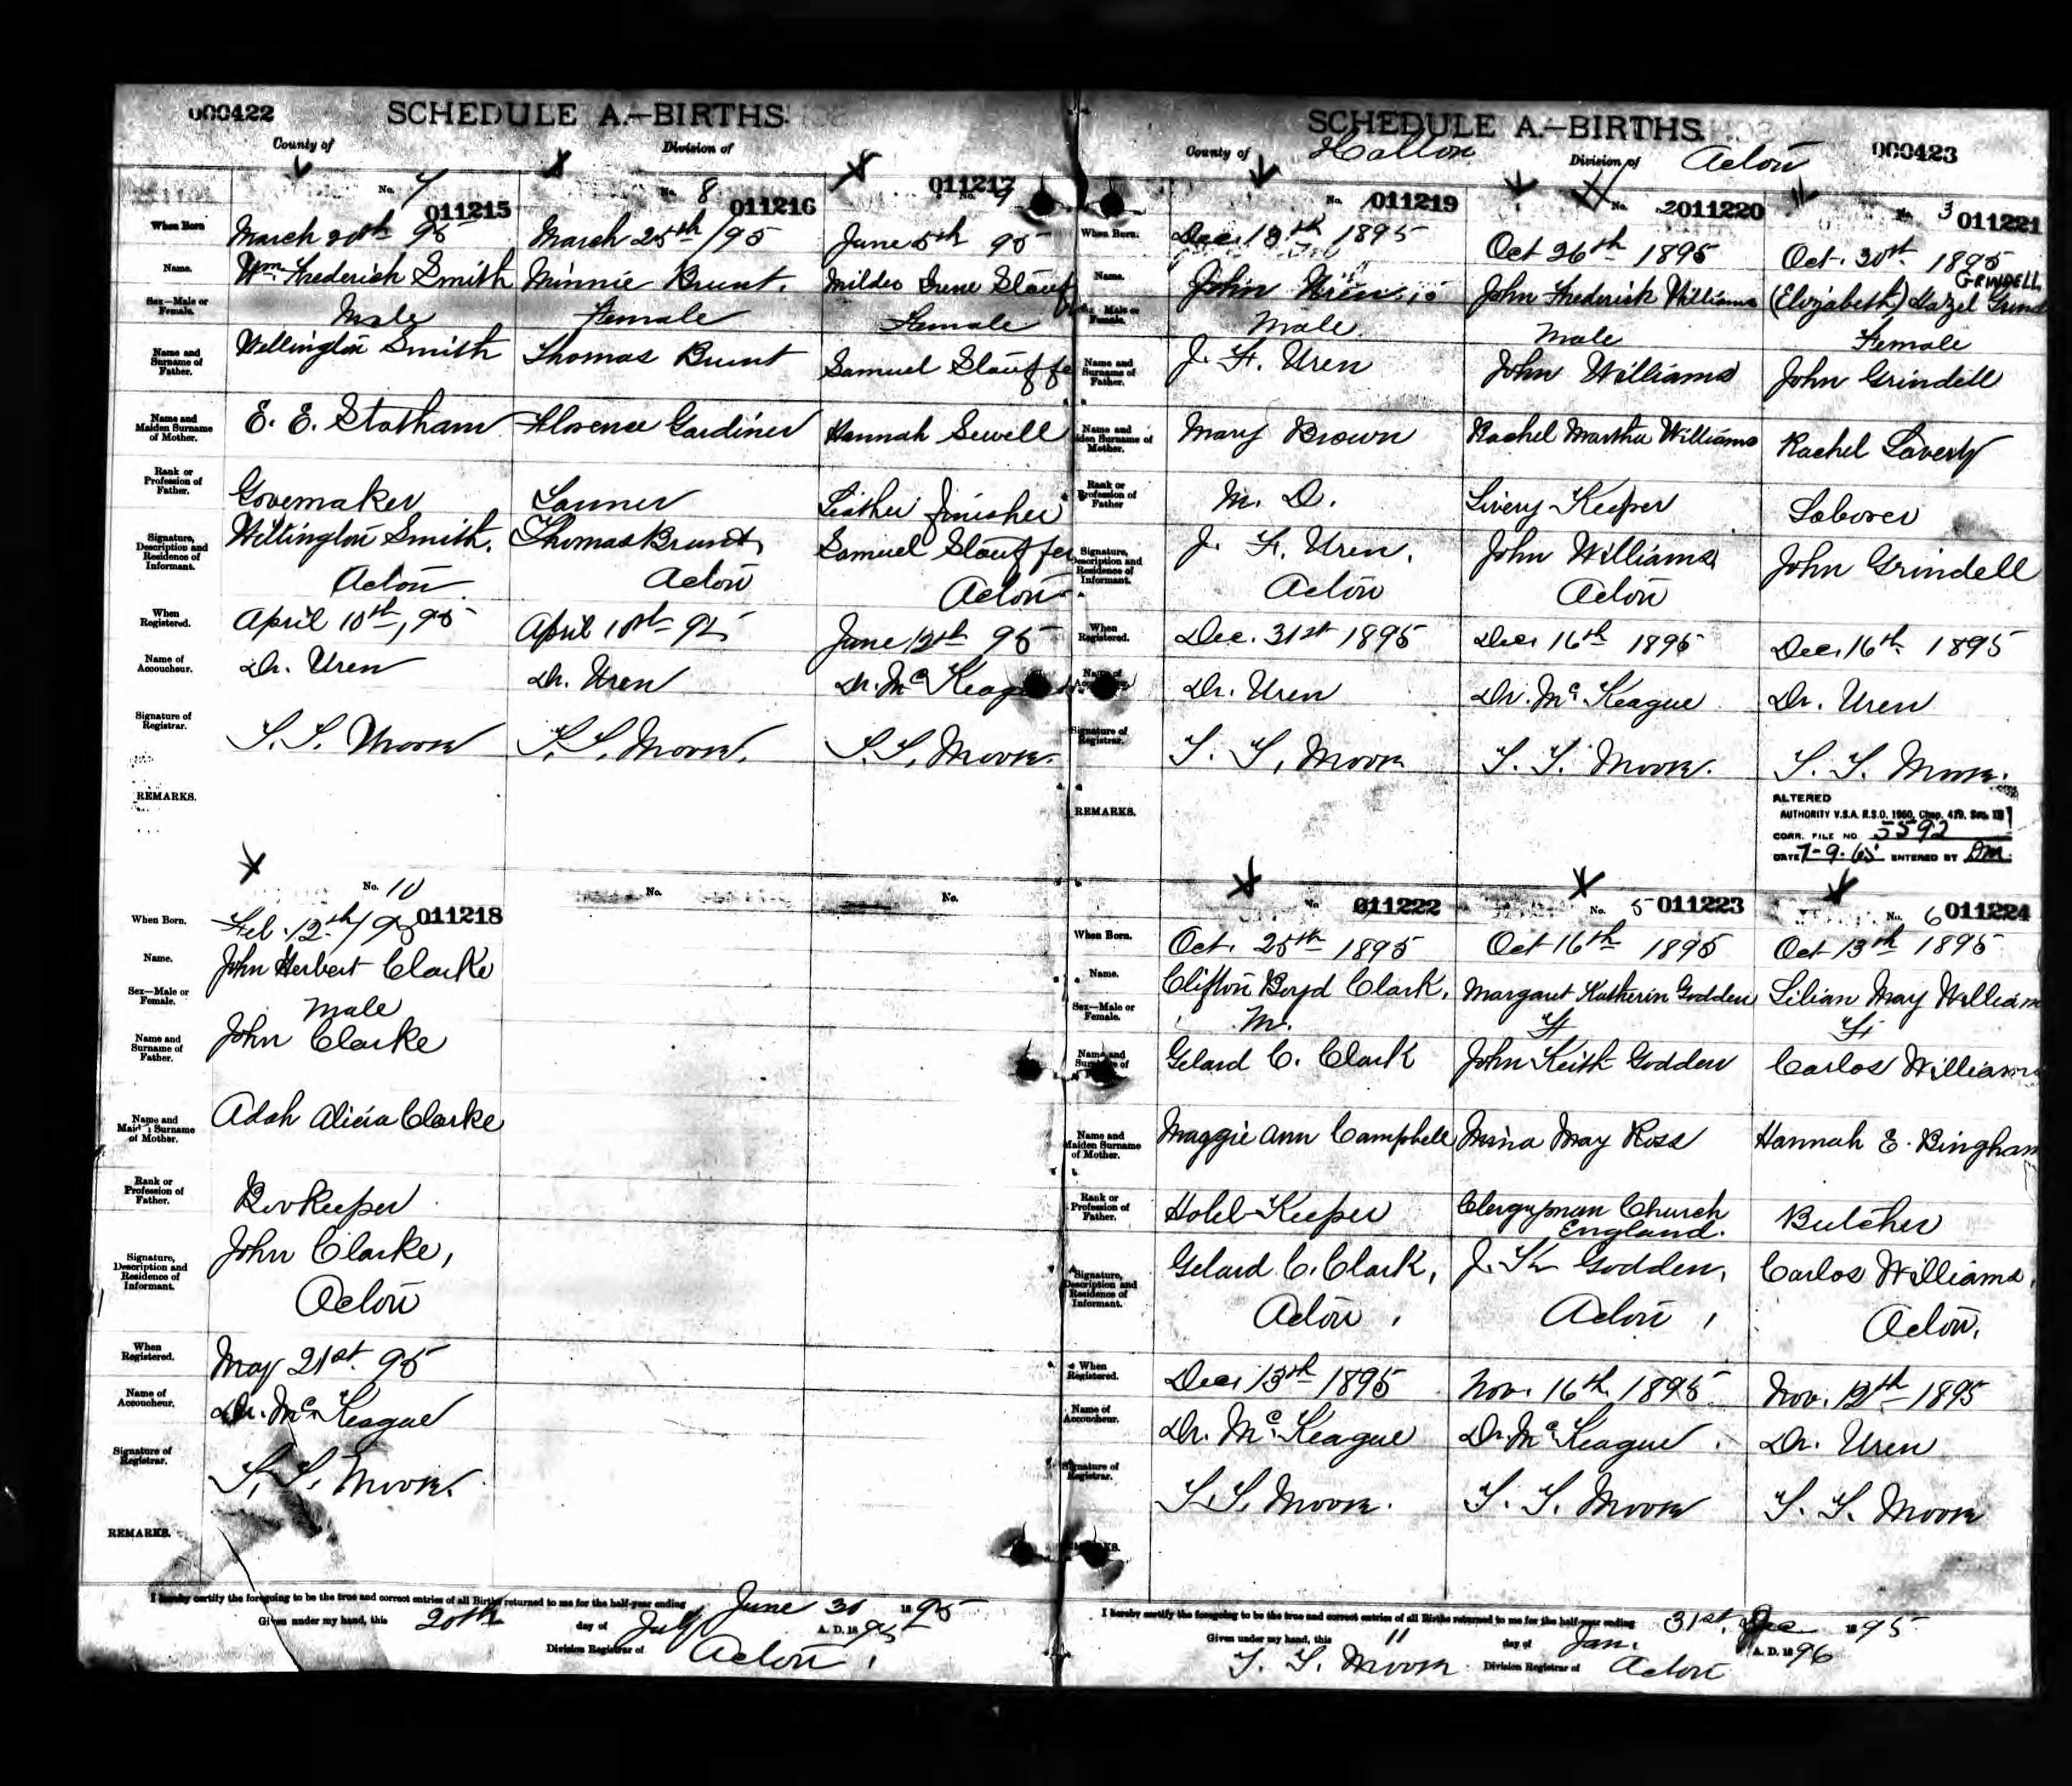 000422
SCHEDULE A.—BIRTHS.
County of
Division of
No. 7
011215
No. 8
011216
011217
When Born
March 20th 95
March 25th/95
June 5th 95
Name.
Wm. Frederick Smith
Minnie Brunt.
Irene Stauf
Sex—Male or Female.
Male
Female
Female
Name and Surname of Father.
Wellington Smith
Thomas Brunt
Samuel Stauffe
Name and Maiden Surname of Mother.
E. E. Statham
Florence Gardiner
Hannah Sewell
Rank or Profession of Father.
Glovemaker
Tanner
Leather finisher
Signature, Description and Residence of Informant.
Wellington Smith.
Acton
Thomas Brunt,
Acton
Samuel Stauffer
Acton
When Registered.
April 10th, 95
April 10th 95
June 12th 95
Name of Accoucheur.
Dr. Uren
Dr. Uren
Dr. Mc Keague
Signature of Registrar.
REMARKS.
No. 10
No.
No.
011218
When Born.
Feb. 12th/95
Name.
John Herbert Clarke
Sex—Male or Female.
Male
Name and Surname of Father.
John Clarke
Name and Maiden Surname of Mother.
Adah Alicia Clarke
Rank or Profession of Father.
Bookeeper
Signature, Description and Residence of Informant.
John Clarke,
Acton
When Registered.
May 21st. 95
Name of Accoucheur.
Dr. Mc Keague
Signature of Registrar.
REMARKS.
I hereby certify the foregoing to be the true and correct entries of all Births returned to me for the half-year ending June 30 1895
Given under my hand, this 20th day of July A. D. 1895
Division Registrar of Acton
SCHEDULE A.—BIRTHS.
County of Halton
Division of Acton
000423
No. 011219
No. 2 011220
No. 3 011221
When Born.
1895
Oct 26th 1895
Oct. 1895
Name.
John Uren
John Frederick Williams
GRINDELL
(Elizabeth) Hazel Grind
Male
Male
Female
Name and Surname of Father.
J. F. Uren
John Williams
John Grindell
Name and Maiden Surname of Mother.
Mary Brown
Rachel Martha Williams
Rachel Laverty
Rank or Profession of Father
M. D.
Livery Keeper
Laborer
Signature, Description and Residence of Informant.
J. F. Uren.
Acton
John Williams
Acton
John Grindell
When Registered.
Dec. 31st 1895
Dec. 16th 1895
Dec. 16th 1895
Dr. Uren
Dr. Mc Keague
Dr. Uren
Signature of Registrar.
REMARKS.
ALTERED
AUTHORITY V.S.A. R.S.O. 1960, Chap. 419.
CORR. FILE NO. 5592
DATE 7-9-65 ENTERED BY DM
011222
No. 5 011223
No. 6 011224
When Born.
Oct. 25th 1895
Oct 16th 1895
Oct 13th 1895
Name.
Clifton Boyd Clark.
Margaret Katherin Godden
Lilian May William
Sex—Male or Female.
M.
F
F
Name and
Gelard C. Clark
John Keith Godden
Carlos Williams
Name and Maiden Surname of Mother.
Maggie Ann Campbell
Mina May Ross
Hannah E. Bingham
Rank or Profession of Father.
Hotel Keeper
Clergyman Church England.
Butcher
Signature, Description and Residence of Informant.
Gelard C. Clark,
Acton
J. K. Godden,
Acton
Carlos Williams,
Acton.
When Registered.
Dec. 13th 1895
Nov. 16th 1895
Nov. 12th 1895
Name of Accoucheur.
Dr. Mc Keague
Dr. Mc Keague.
Dr. Uren
Signature of Registrar.
I hereby certify the foregoing to be the true and correct entries of all Births returned to me for the half-year ending 31st. Dec 1895
Given under my hand, this 11 day of Jan. A. D. 1896
Division Registrar of Acton